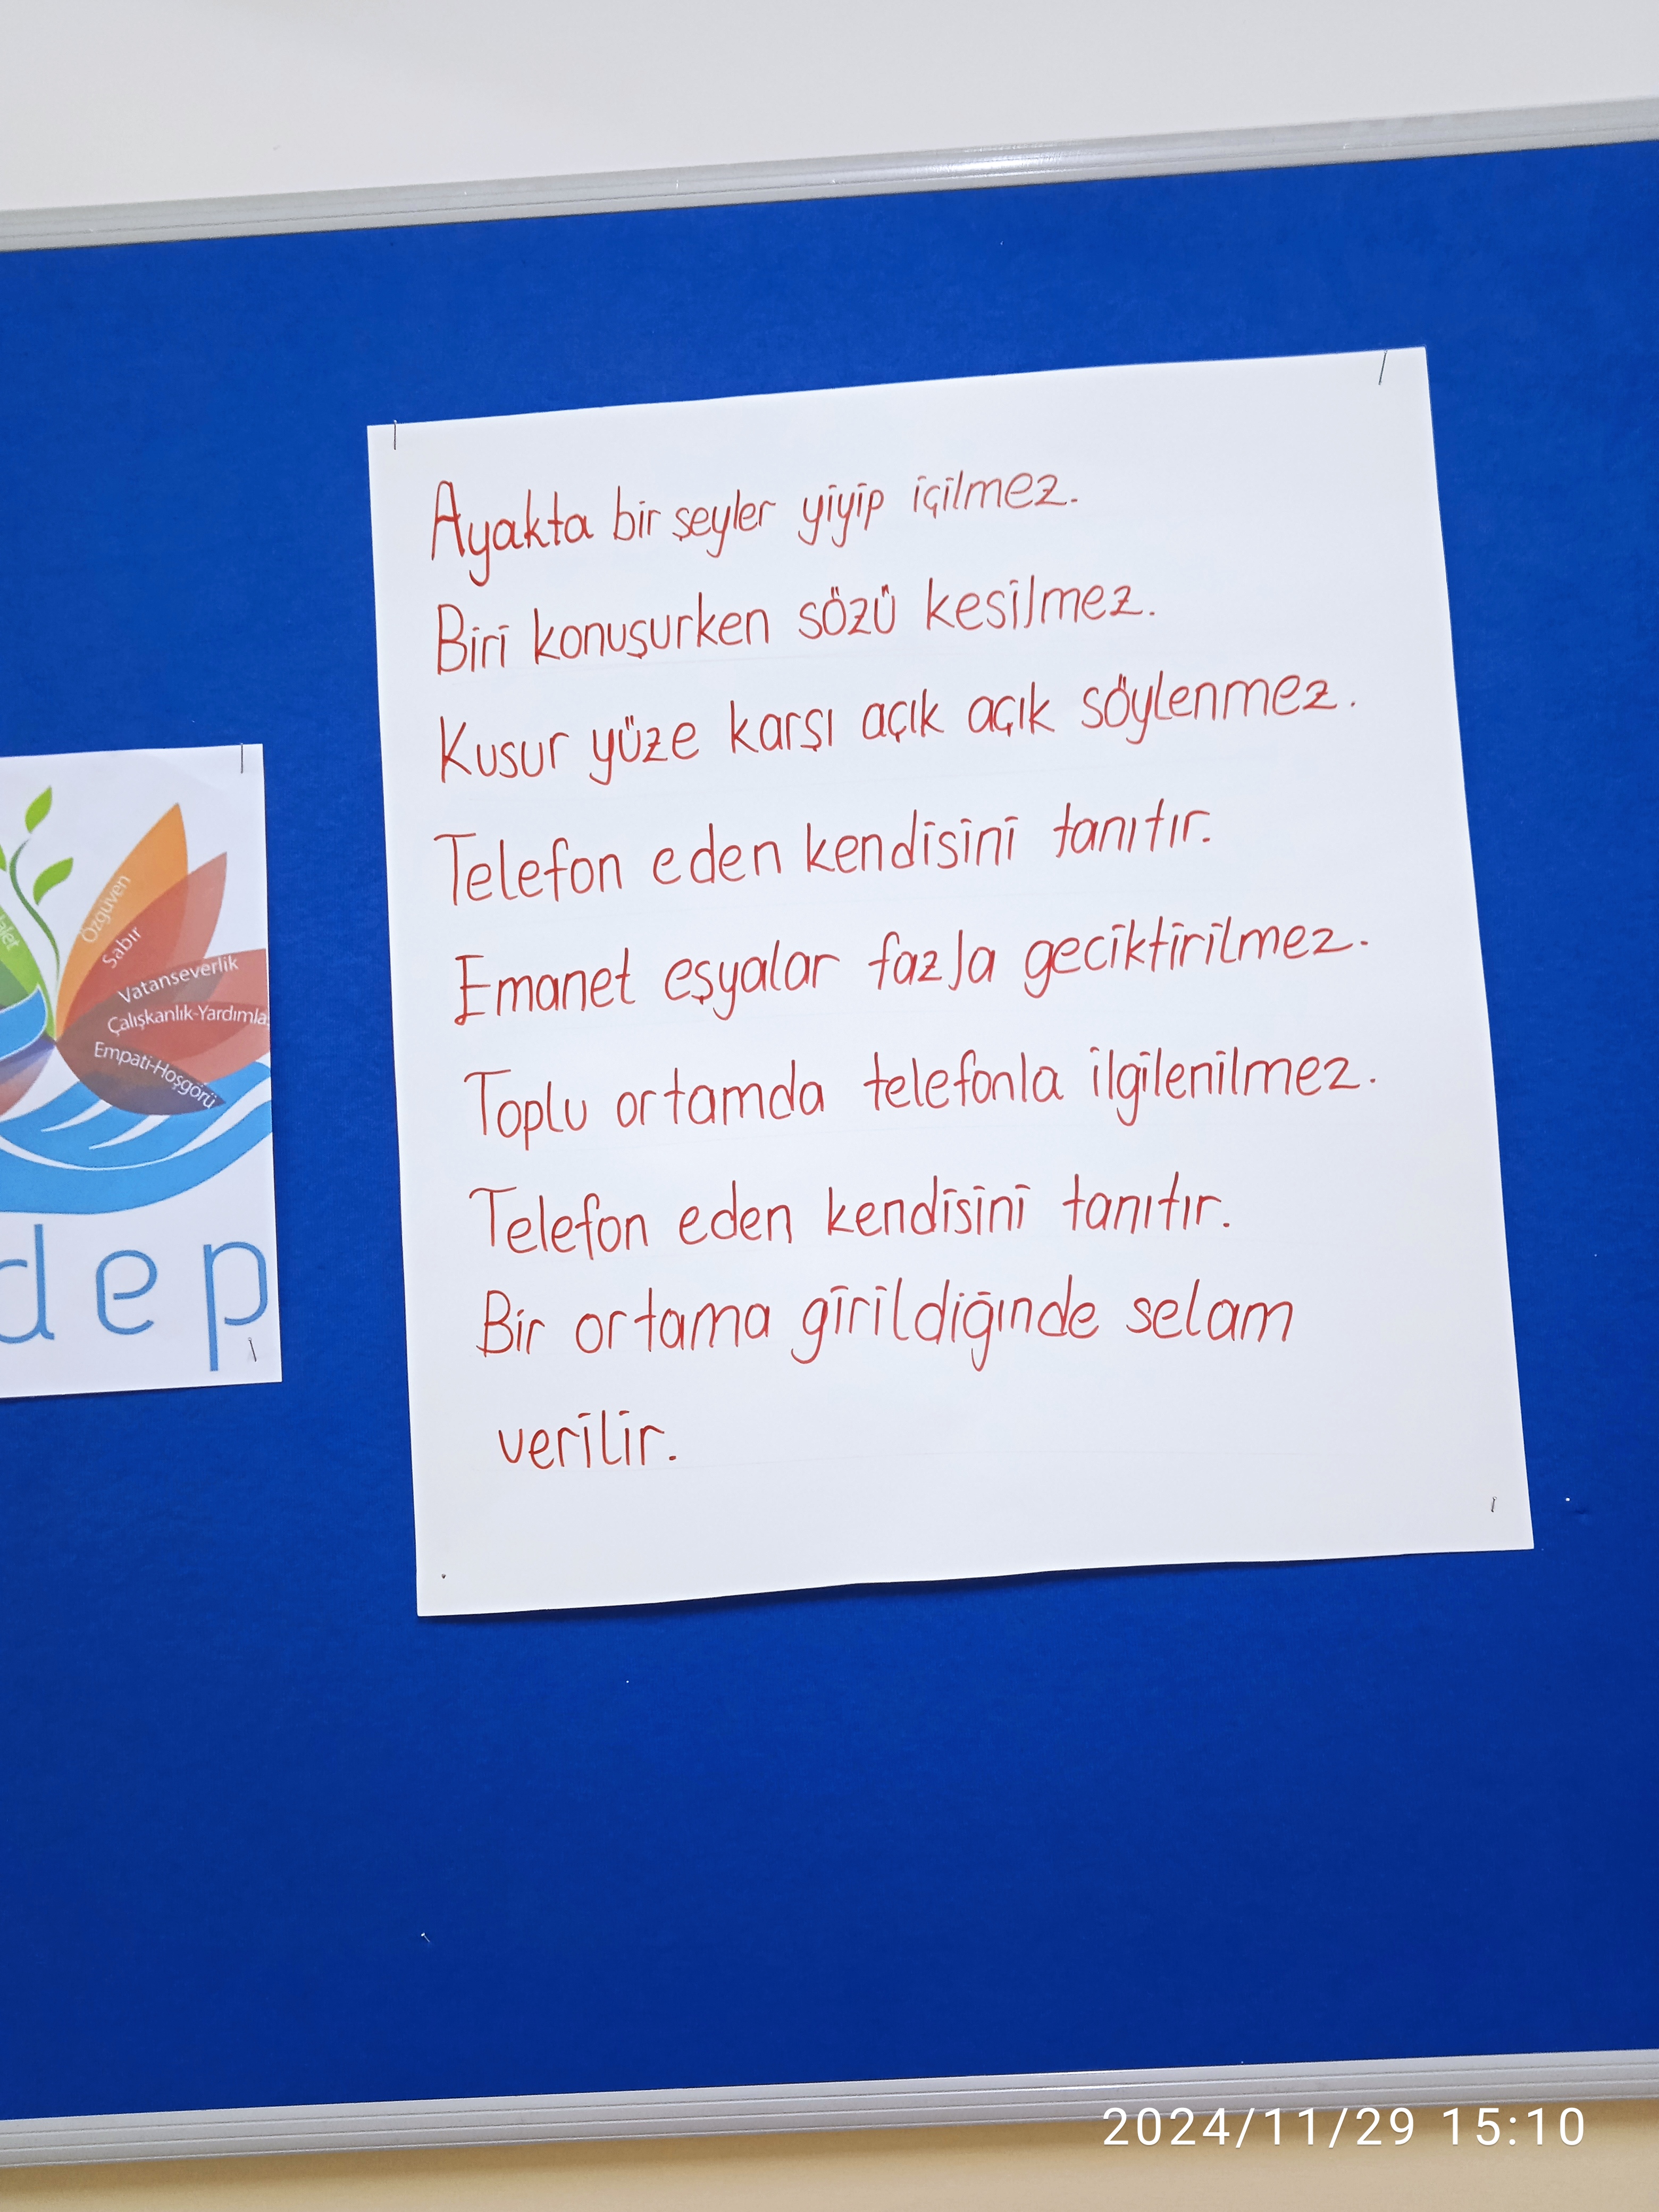 Ayakta bir şeyler yiyip içilmez.
Biri konuşurken sözü kesilmez.
Kusur yüze karşı açık açık söylenmez.
Telefon eden kendisini tanıtır.
Emanet eşyalar fazla geciktirilmez.
Toplu ortamda telefonla ilgilenilmez.
Telefon eden kendisini tanıtır.
Bir ortama girildiğınde selam
verilir.
Özgüven
Sabır
Vatanseverlik
Çalışkanlık-Yardımla
Empati-Hoşgörü
dep
2024/11/29 15:10